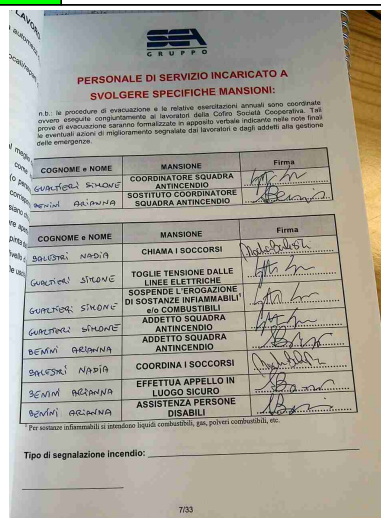 LAVORO
automezzi
locali/repart
al meglio
come
(o perso
corrispo
siano ch
SEA
GRUPPO
PERSONALE DI SERVIZIO INCARICATO A
SVOLGERE SPECIFICHE MANSIONI:
n.b.: le procedure di evacuazione e le relative esercitazioni annuali sono coordinate
ovvero eseguite congiuntamente ai lavoratori della Cofiro Società Cooperativa. Tali
prove di evacuazione saranno formalizzate in apposito verbale indicante nelle note finali
le eventuali azioni di miglioramento segnalate dai lavoratori e dagli addetti alla gestione
delle emergenze.
COGNOME e NOME MANSIONE Firma
GUALTIERI SIMONE COORDINATORE SQUADRA
ANTINCENDIO
BENINI ARIANNA SOSTITUTO COORDINATORE
SQUADRA ANTINCENDIO
COGNOME e NOME MANSIONE Firma
BALESTRI NADIA CHIAMA I SOCCORSI
GUALTIERI SIMONE TOGLIE TENSIONE DALLE
LINEE ELETTRICHE
GUALTIERI SIMONE SOSPENDE L'EROGAZIONE
DI SOSTANZE INFIAMMABILI¹
e/o COMBUSTIBILI
GUALTIERI SIMONE ADDETTO SQUADRA
ANTINCENDIO
BENINI ARIANNA ADDETTO SQUADRA
ANTINCENDIO
BALESTRI NADIA COORDINA I SOCCORSI
BENINI ARIANNA EFFETTUA APPELLO IN
LUOGO SICURO
BENINI ARIANNA ASSISTENZA PERSONE
DISABILI
¹ Per sostanze infiammabili si intendono liquidi combustibili, gas, polveri combustibili, etc.
Tipo di segnalazione incendio:
7/33